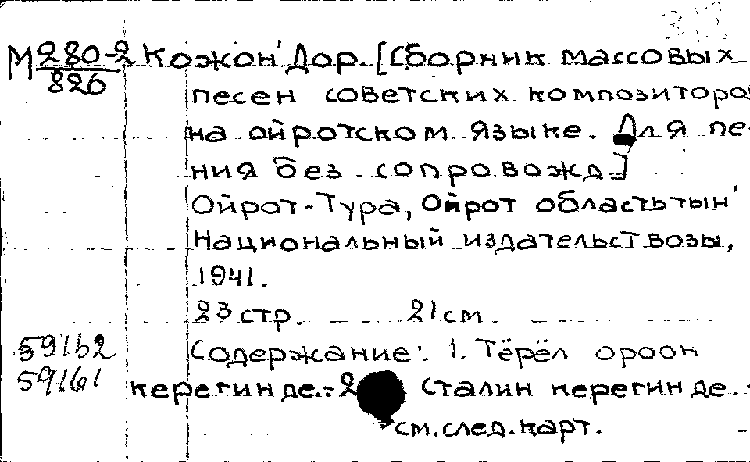 М 280-2 Кожон' Дор. [Сборник массовых
826
песен советских композиторо
на ойротском языке. Для пе-
ния без сопровожд.]
Ойрот-Тура, Ойрот областьтын'
Национальный издательствозы,
1941.
23 стр. 21 см.
59162 Содержание: 1. Тёрёл ороон
59161 керегинде.-2 Сталин керегинде.-
см.след.карт.